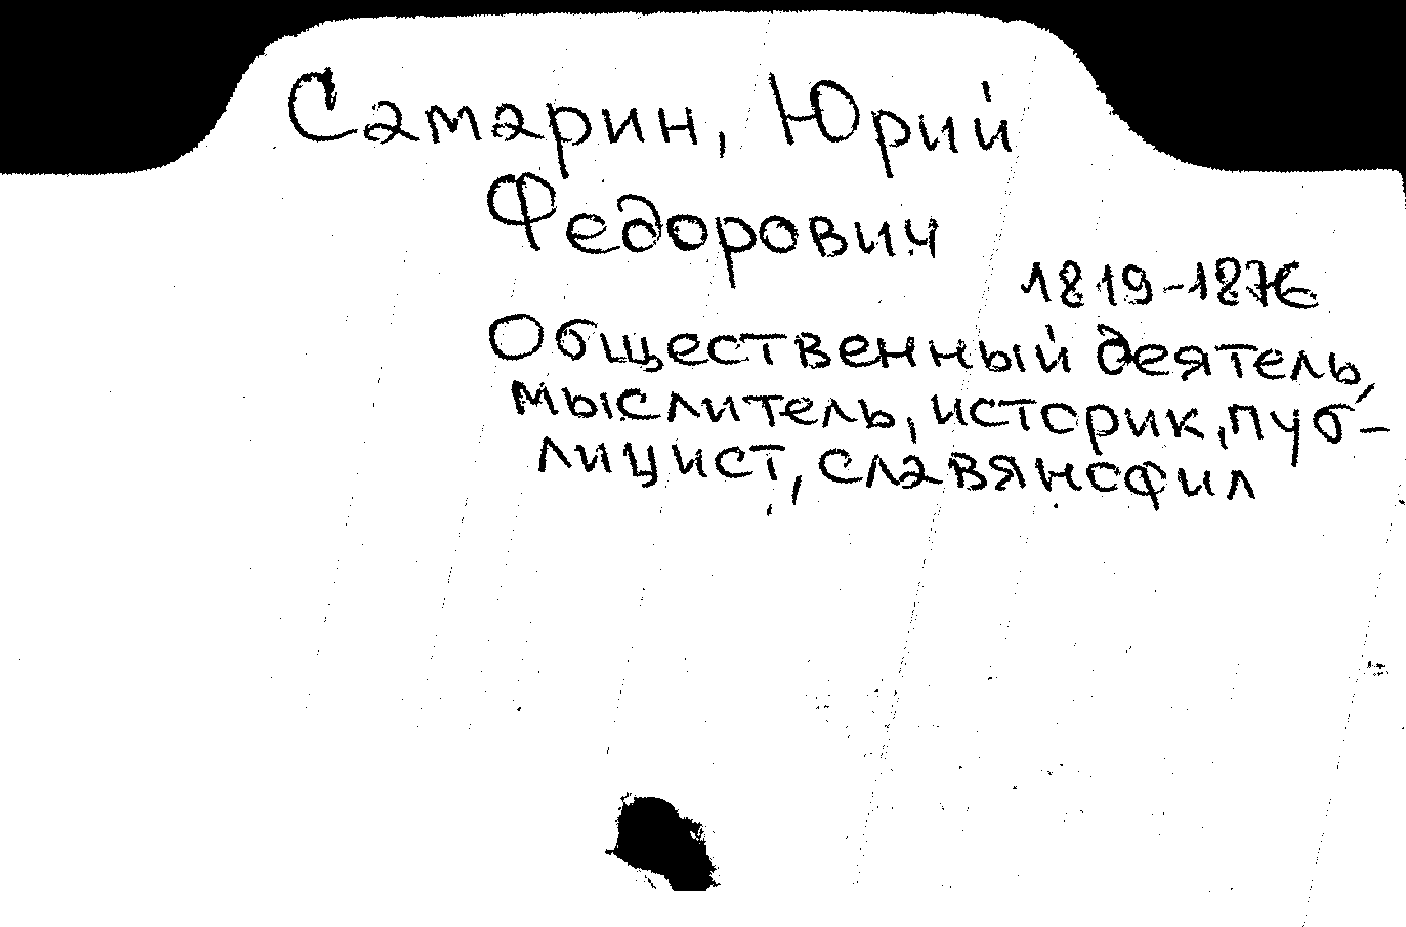 Самарин, Юрий
Федорович
1819-1876
Общественный деятель,
мыслитель, историк, пуб-
лицист, славянофил